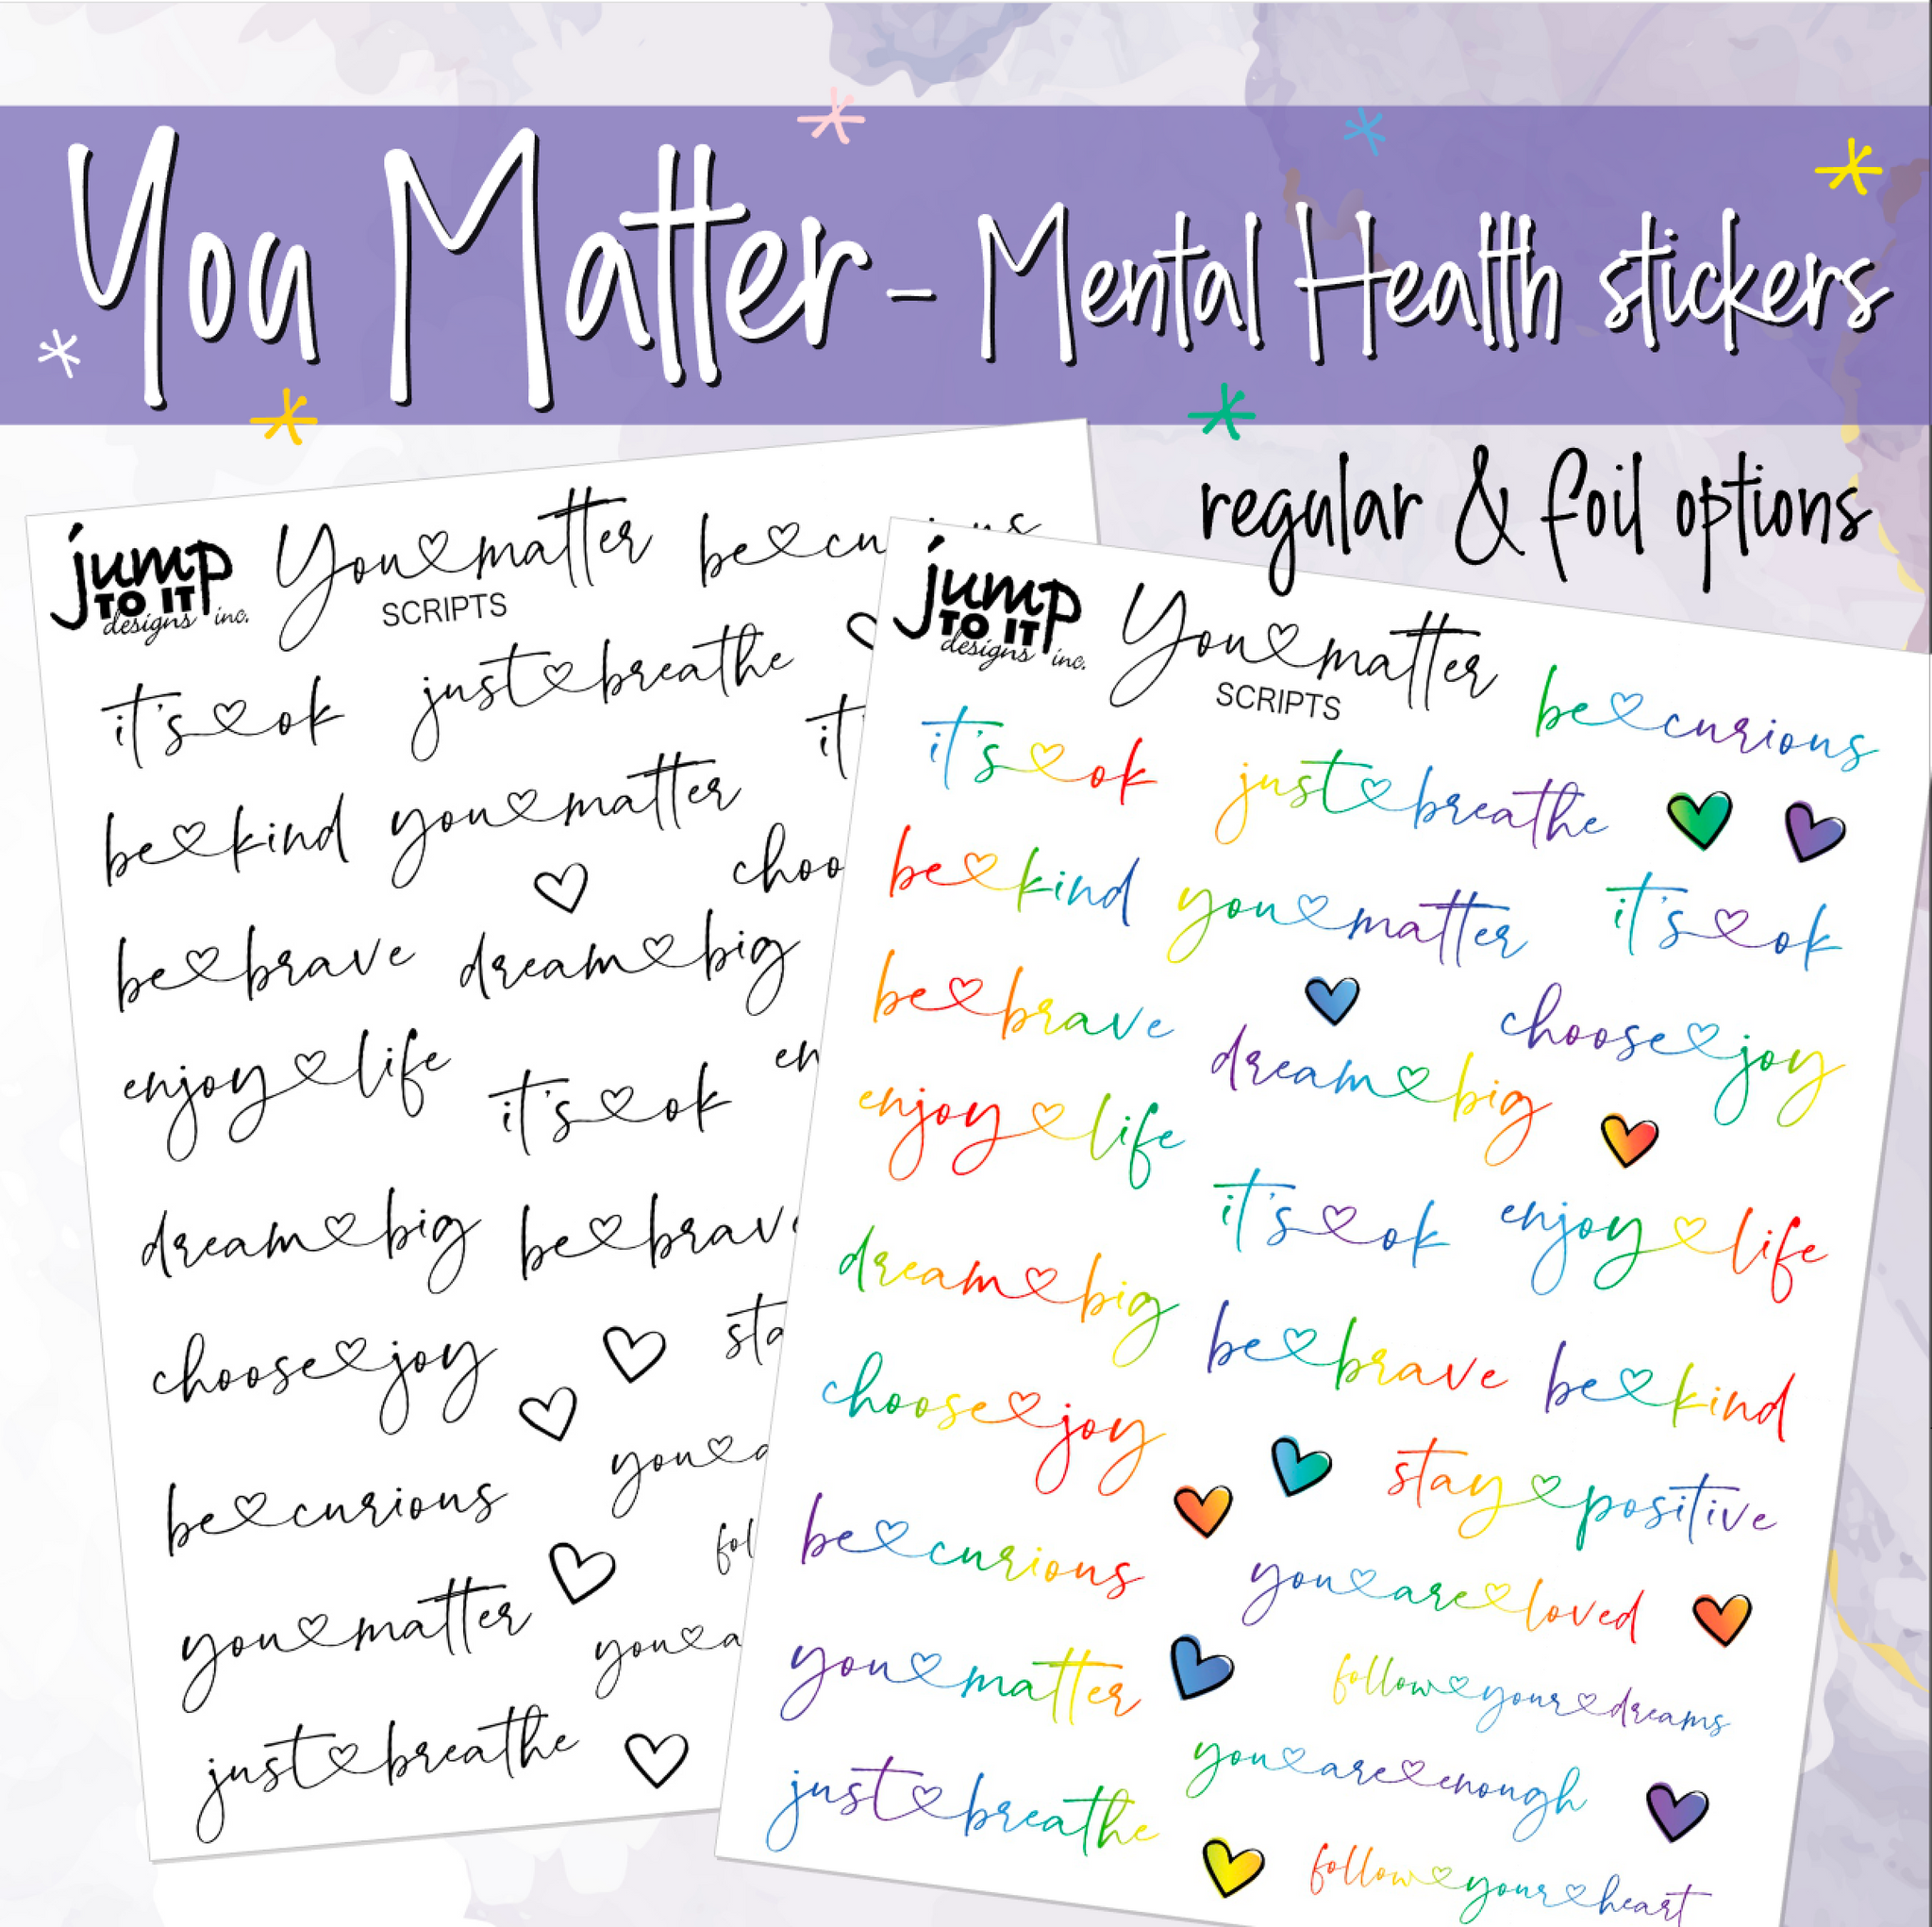 You Matter - Mental Health stickers
regular & foil options
jump
TO IT
designs inc.
You matter
SCRIPTS
it's ok
just breathe
be kind
you matter
be brave
dream big
enjoy life
it's ok
dream big
be brave
choose joy
be curious
you matter
just breathe
jump
TO IT
designs inc.
You matter
SCRIPTS
be curious
it's ok
just breathe
be kind
you matter
it's ok
be brave
choose joy
dream big
enjoy life
it's ok
enjoy life
dream big
be brave
be kind
choose joy
stay positive
be curious
you are loved
you matter
follow your dreams
you are enough
just breathe
follow your heart